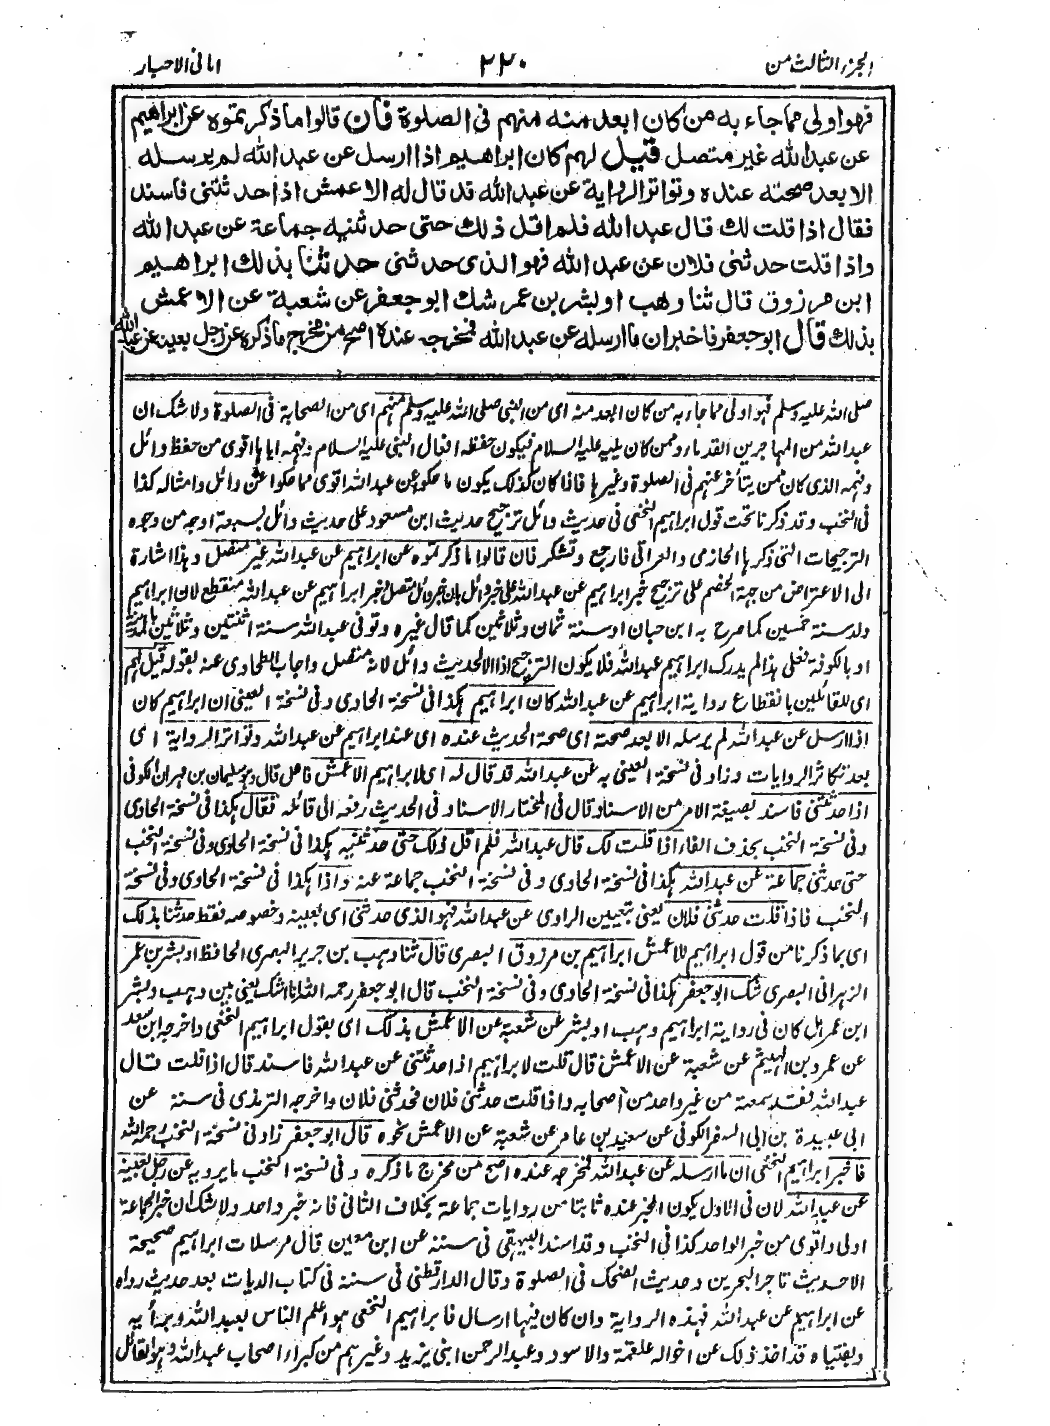 الجزء الثالث من
٢٢٠
امانى الاحبار
فهو اولى مما جاء به من كان ابعد منه منهم فى الصلوة فان قالوا ما ذكرتموه عن ابراهيم
عن عبد الله غير متصل قيل لهم كان ابراهيم اذا ارسل عن عبد الله لم يرسله
الا بعد صحته عنده وتواتر الرواية عن عبد الله قد قال له الاعمش اذا حدثتنى فاسند
فقال اذا قلت لك قال عبد الله فلم اقل ذلك حتى حدثنيه جماعة عن عبد الله
واذا قلت حدثنى فلان عن عبد الله فهو الذى حدثنى حدثنا بذلك ابراهيم
ابن مرزوق قال ثنا وهب او بشر بن عمر شك ابو جعفر عن شعبة عن الاعمش
بذلك قال ابو جعفر فاخبر ان ما ارسله عن عبد الله فمخرجه عنده اصح من مخرج ما ذكره عن رجل بعينه عن عبد الله
صلى الله عليه وسلم فهو اولى مما جاء به من كان ابعد منه اى من النبى صلى الله عليه وسلم منهم اى من الصحابة فى الصلوة ولا شك ان
عبد الله من المهاجرين القدماء وممن كان يليه عليه السلام فيكون حفظه افعال النبى عليه السلام وفهمه اياها اقوى من حفظ وائل
وفهمه الذى كان ممن يتأخر عنهم فى الصلوة وغيرها فاذا كان كذلك يكون ما حكوه عن عبد الله اقوى مما حكوا عن وائل وامثاله كذا
فى النخب وقد ذكرنا تحت قول ابراهيم النخعى فى حديث وائل ترجيح حديث ابن مسعود على حديث وائل بسبعة اوجه من وجوه
الترجيحات التى ذكرها الحازمى والعراقى فارجع وتشكر فان قالوا ما ذكرتموه عن ابراهيم عن عبد الله غير متصل وهذا اشارة
الى الاعتراض من جهة الخصم على ترجيح خبر ابراهيم عن عبد الله على خبر وائل بان خبر وائل متصل خبر ابراهيم عن عبد الله منقطع لان ابراهيم
ولد سنة خمسين كما صرح به ابن حبان او سنة ثمان وثلاثين كما قال غيره وتوفى عبد الله سنة اثنتين وثلاثين بالمدينة
او بالكوفة فعلى هذا لم يدرك ابراهيم عبد الله فلا يكون الترجيح اذا الا لحديث وائل لانه متصل واجاب الطحاوى عنه بقوله قيل لهم
اى للقائلين بانقطاع رواية ابراهيم عن عبد الله كان ابراهيم هكذا فى نسخة الحاوى وفى نسخة العينى ان ابراهيم كان
اذا ارسل عن عبد الله لم يرسله الا بعد صحته اى صحة الحديث عنده اى عند ابراهيم عن عبد الله وتواتر الرواية اى
بعد تكاثر الروايات وزاد فى نسخة العينى به عن عبد الله قد قال له اى لابراهيم الاعمش فاعل قال وهو سليمان بن مهران الكوفى
اذا حدثتنى فاسند بصيغة الامر من الاسناد قال فى المختار الاسناد فى الحديث رفعه الى قائله فقال هكذا فى نسخة الحاوى
وفى نسخة النخب بحذف الفاء اذا قلت لك قال عبد الله فلم اقل ذلك حتى حدثنيه هكذا فى نسخة الحاوى وفى نسخة النخب
حتى حدثنى جماعة عن عبد الله هكذا فى نسخة الحاوى وفى نسخة النخب جماعة عنه واذا هكذا فى نسخة الحاوى وفى نسخة
النخب فاذا قلت حدثنى فلان يعنى بتعيين الراوى عن عبد الله فهو الذى حدثنى اى بعينه وخصوصه فقط حدثنا بذلك
اى بما ذكرنا من قول ابراهيم للاعمش ابراهيم بن مرزوق البصرى قال ثنا وهب بن جرير البصرى الحافظ او بشر بن عمر
الزهرانى البصرى شك ابو جعفر هكذا فى نسخة الحاوى وفى نسخة النخب قال ابو جعفر رحمه الله انا اشك يعنى بين وهب وبشر
ابن عمر هل كان فى رواية ابراهيم وهب او بشر عن شعبة عن الاعمش بذلك اى بقول ابراهيم النخعى واخرجه ابن سعد
عن عمرو بن الهيثم عن شعبة عن الاعمش قال قلت لابراهيم اذا حدثتنى عن عبد الله فاسند قال اذا قلت قال
عبد الله فقد سمعته من غير واحد من اصحابه واذا قلت حدثنى فلان فحدثنى فلان واخرجه الترمذى فى سننه عن
ابى عبيدة بن ابى السفر الكوفى عن سعيد بن عامر عن شعبة عن الاعمش نحوه قال ابو جعفر زاد فى نسخة النخب رحمه الله
فاخبر ابراهيم النخعى ان ما ارسله عن عبد الله فمخرجه عنده اصح من مخرج ما ذكره وفى نسخة النخب ما يرويه عن رجل بعينه
عن عبد الله لان فى الاول يكون الخبر عنده ثابتا من روايات جماعة بخلاف الثانى فانه خبر واحد ولا شك ان خبر الجماعة
اولى واقوى من خبر الواحد كذا فى النخب وقد اسند البيهقى فى سننه عن ابن معين قال مرسلات ابراهيم صحيحة
الا حديث تاجر البحرين وحديث الضحك فى الصلوة وقال الدارقطنى فى سننه فى كتاب الديات بعد حديث رواه
عن ابراهيم عن عبد الله فهذه الرواية وان كان فيها ارسال فابراهيم النخعى هو اعلم الناس بعبد الله وبرأيه
وبفتياه قد اخذ ذلك عن اخواله علقمة والاسود وعبد الرحمن ابنى يزيد وغيرهم من كبراء اصحاب عبد الله وهو القائل